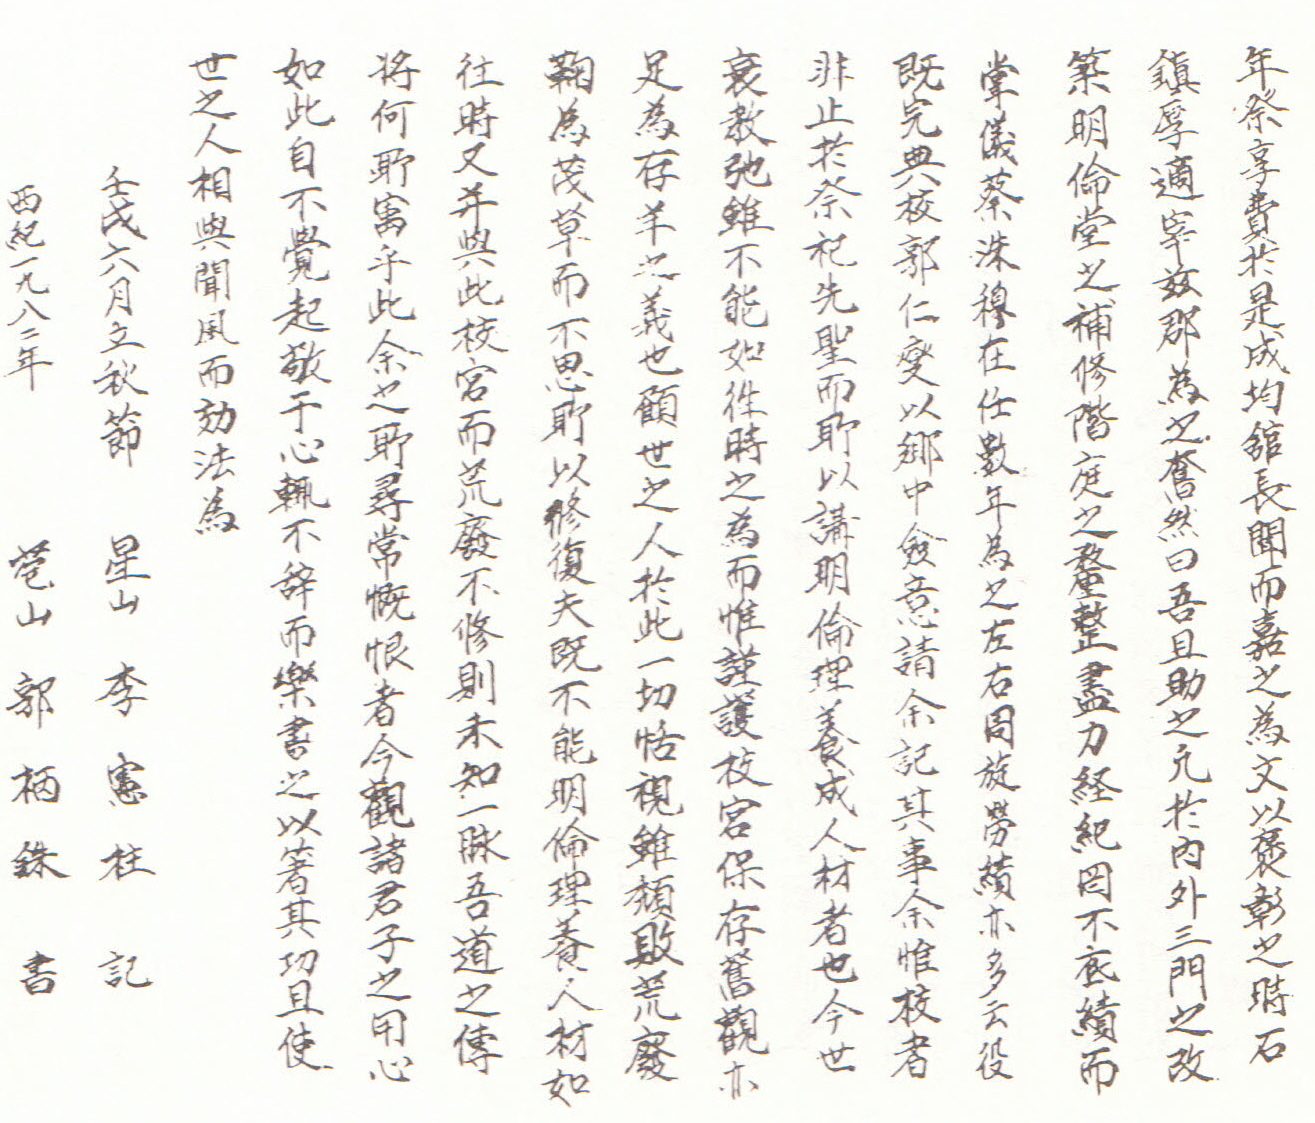 年祭享費於是成均舘長聞而嘉之為文以褒彰之時石
鎮厚適宰玆郡為之奮然曰吾且助之凡於內外三門之改
築明倫堂之補修階庭之釐整盡力経紀罔不底績而
掌儀蔡洙穆在任數年為之左右周旋勞績亦多云役
既完典校郭仁燮以鄉中僉意請余記其事余惟校者
非止於祭祀先聖而耶以講明倫理養成人材者也今世
衰教弛雖不能如徃時之為而惟謹護校宮保存舊觀亦
足為存羊之義也顧世之人於此一切恬視雖頹敗荒廢
鞠為茂草而不思耶以修復夫既不能明倫理養人材如
往時又并與此校宮而荒廢不修則未知一脉吾道之傳
將何耶寓乎此余之耶尋常慨恨者今觀諸君子之用心
如此自不覺起敬于心輒不辞而樂書之以著其功且使
世之人相與聞風而効法為
壬戌六月立秋節 星山 李憲柱 記
西紀一九八二年 苞山 郭柄銖 書